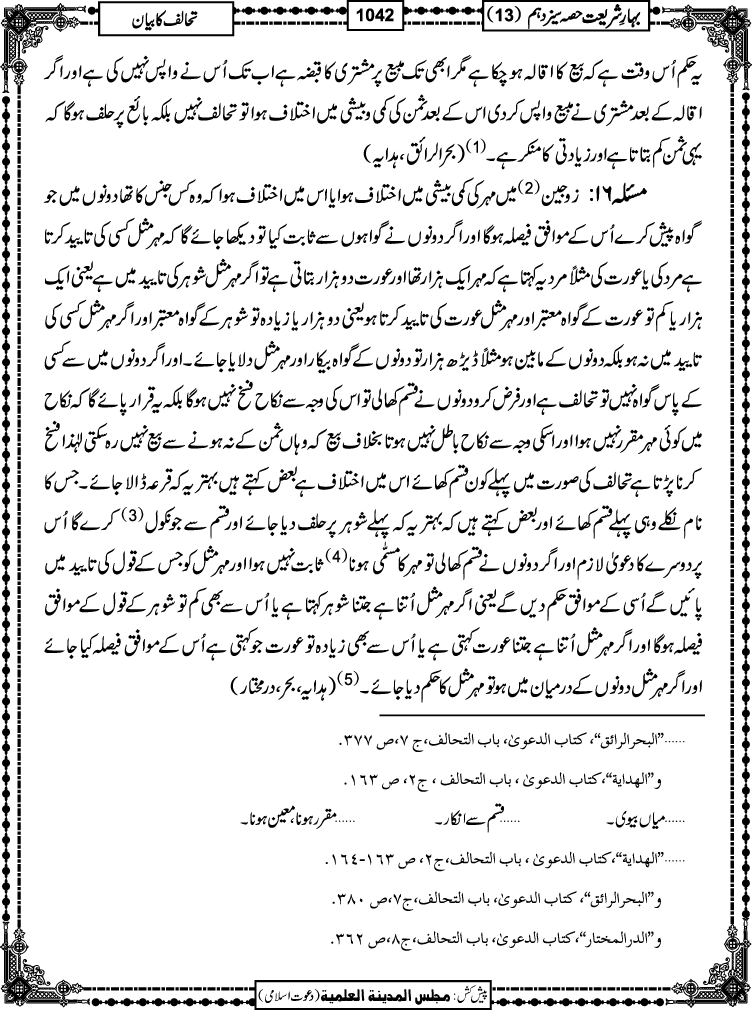 بہارِ شریعت حصہ سیزدہم (13)
1042
تحالف کا بیان
یہ حکم اُس وقت ہے کہ بیع کا اقالہ ہو چکا ہے مگر ابھی تک مبیع پر مشتری کا قبضہ ہے اب تک اُس نے واپس نہیں کی ہے اور اگر
اقالہ کے بعد مشتری نے مبیع واپس کر دی اس کے بعد ثمن کی کمی و بیشی میں اختلاف ہوا تو تحالف نہیں بلکہ بائع پر حلف ہوگا کہ
یہی ثمن کم بتاتا ہے اور زیادتی کا منکر ہے۔(1) (بحرالرائق، ہدایہ)
مسئلہ ۱۶: زوجین(2) میں مہر کی کمی بیشی میں اختلاف ہوا یا اس میں اختلاف ہوا کہ وہ کس جنس کا تھا دونوں میں جو
گواہ پیش کرے اُس کے موافق فیصلہ ہوگا اور اگر دونوں نے گواہوں سے ثابت کیا تو دیکھا جائے گا کہ مہر مثل کسی کی تایید کرتا
ہے مرد کی یا عورت کی مثلاً مرد یہ کہتا ہے کہ مہر ایک ہزار تھا اور عورت دو ہزار بتاتی ہے تو اگر مہر مثل شوہر کی تایید میں ہے یعنی ایک
ہزار یا کم تو عورت کے گواہ معتبر اور مہر مثل عورت کی تایید کرتا ہو یعنی دو ہزار یا زیادہ تو شوہر کے گواہ معتبر اور اگر مہر مثل کسی کی
تایید میں نہ ہو بلکہ دونوں کے مابین ہو مثلاً ڈیڑھ ہزار تو دونوں کے گواہ بیکار اور مہر مثل دلایا جائے۔ اور اگر دونوں میں سے کسی
کے پاس گواہ نہیں تو تحالف ہے اور فرض کرو دونوں نے قسم کھالی تو اس کی وجہ سے نکاح فسخ نہیں ہوگا بلکہ یہ قرار پائے گا کہ نکاح
میں کوئی مہر مقرر نہیں ہوا اور اسکی وجہ سے نکاح باطل نہیں ہوتا بخلاف بیع کہ وہاں ثمن کے نہ ہونے سے بیع نہیں رہ سکتی لہٰذا فسخ
کرنا پڑتا ہے تحالف کی صورت میں پہلے کون قسم کھائے اس میں اختلاف ہے بعض کہتے ہیں بہتر یہ کہ قرعہ ڈالا جائے۔ جس کا
نام نکلے وہی پہلے قسم کھائے اور بعض کہتے ہیں کہ بہتر یہ کہ پہلے شوہر پر حلف دیا جائے اور قسم سے جو نکول(3) کرے گا اُس
پر دوسرے کا دعویٰ لازم اور اگر دونوں نے قسم کھالی تو مہر کا مسمّٰی ہونا(4) ثابت نہیں ہوا اور مہر مثل کو جس کے قول کی تایید میں
پائیں گے اُسی کے موافق حکم دیں گے یعنی اگر مہر مثل اُتنا ہے جتنا شوہر کہتا ہے یا اُس سے بھی کم تو شوہر کے قول کے موافق
فیصلہ ہوگا اور اگر مہر مثل اُتنا ہے جتنا عورت کہتی ہے یا اُس سے بھی زیادہ تو عورت جو کہتی ہے اُس کے موافق فیصلہ کیا جائے
اور اگر مہر مثل دونوں کے درمیان میں ہو تو مہر مثل کا حکم دیا جائے۔(5) (ہدایہ، بحر، درمختار)
......"البحرالرائق"، كتاب الدعوىٰ، باب التحالف، ج ٧، ص ٣٧٧.
و"الهداية"، كتاب الدعوىٰ، باب التحالف، ج٢، ص ١٦٣.
......میاں بیوی۔ ......قسم سے انکار۔ ......مقرر ہونا، معین ہونا۔
......"الهداية"، كتاب الدعوىٰ، باب التحالف، ج٢، ص ١٦٣-١٦٤.
و"البحرالرائق"، كتاب الدعوىٰ، باب التحالف، ج٧، ص ٣٨٠.
و"الدرالمختار"، كتاب الدعوىٰ، باب التحالف، ج٨، ص ٣٦٢.
پیش کش: مجلس المدينة العلمية (دعوت اسلامی)